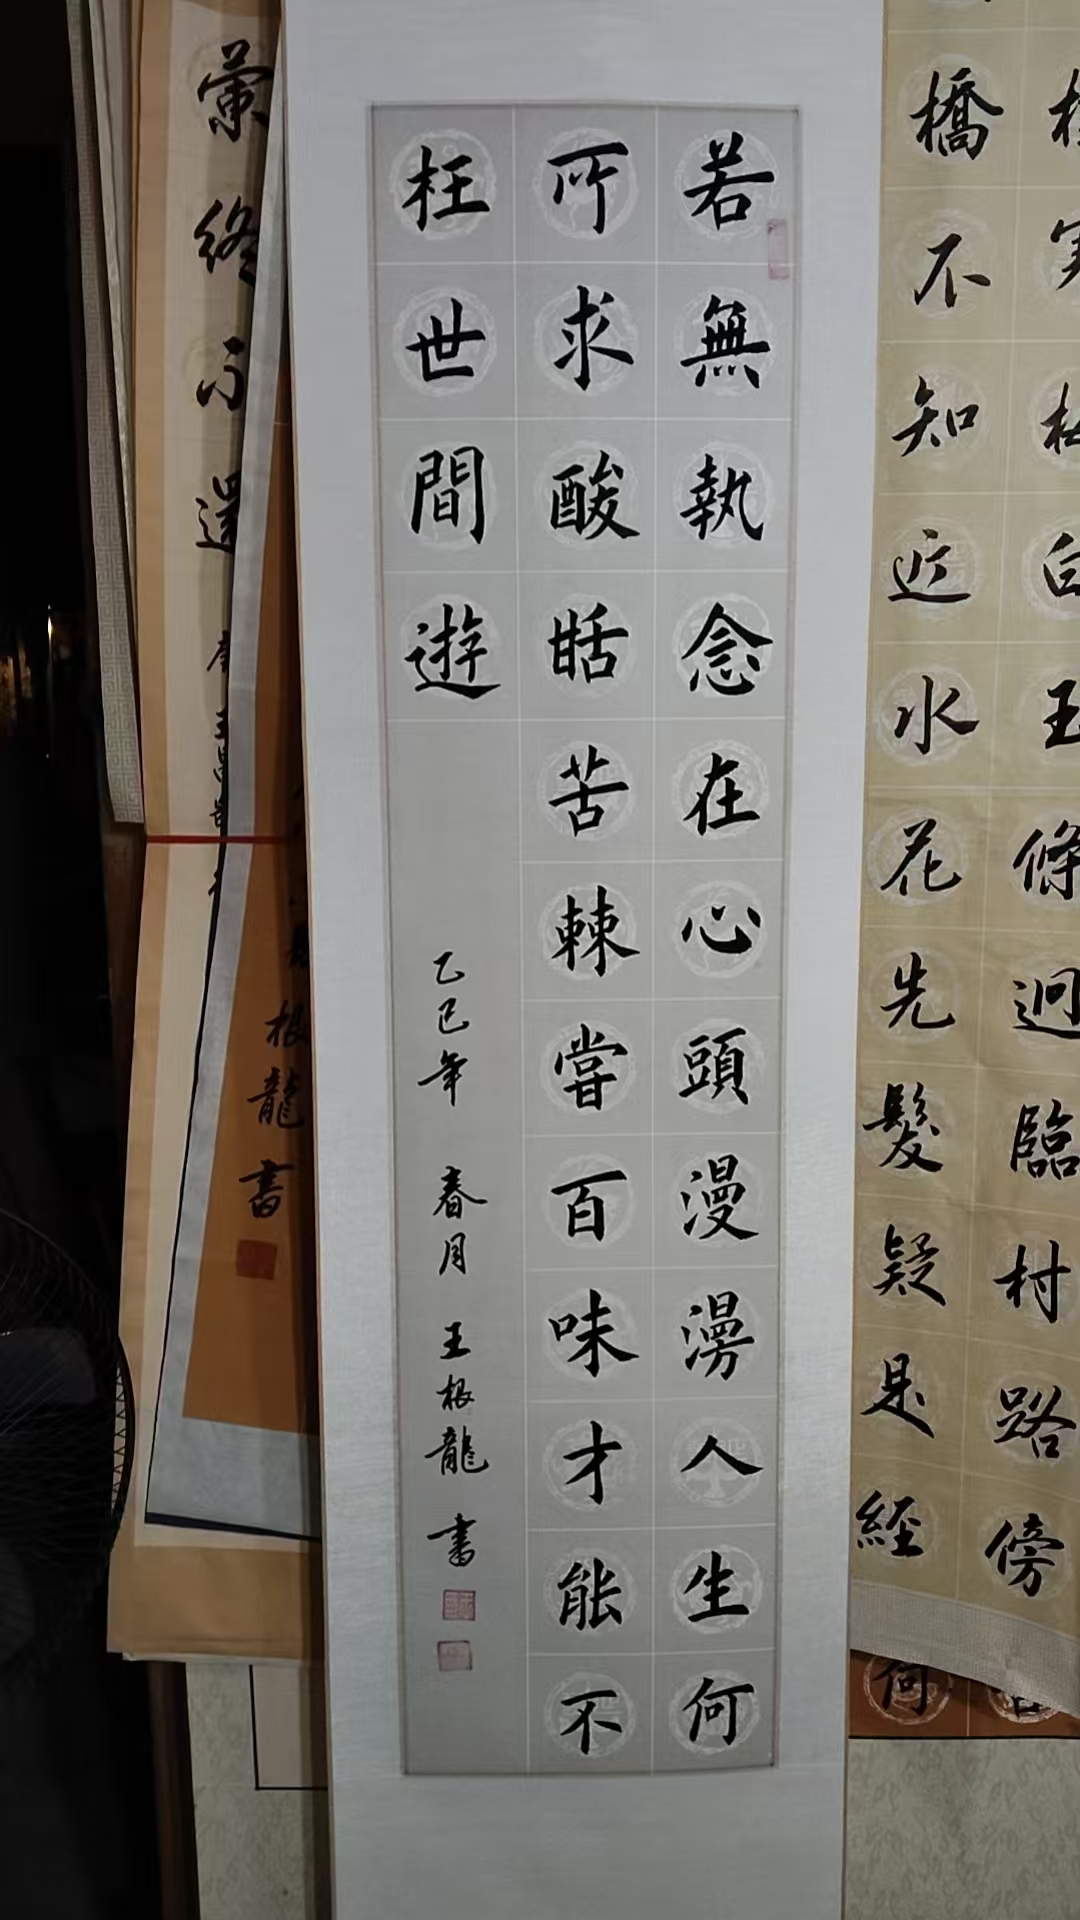 若無執念在心頭漫漫人生何
所求酸甜苦辣嘗百味才能不
枉世間遊
乙巳年 春月 王根龍 書
橋不知近水花先發疑是經
梅白玉條迥臨村路傍
終不還
根龍書
何